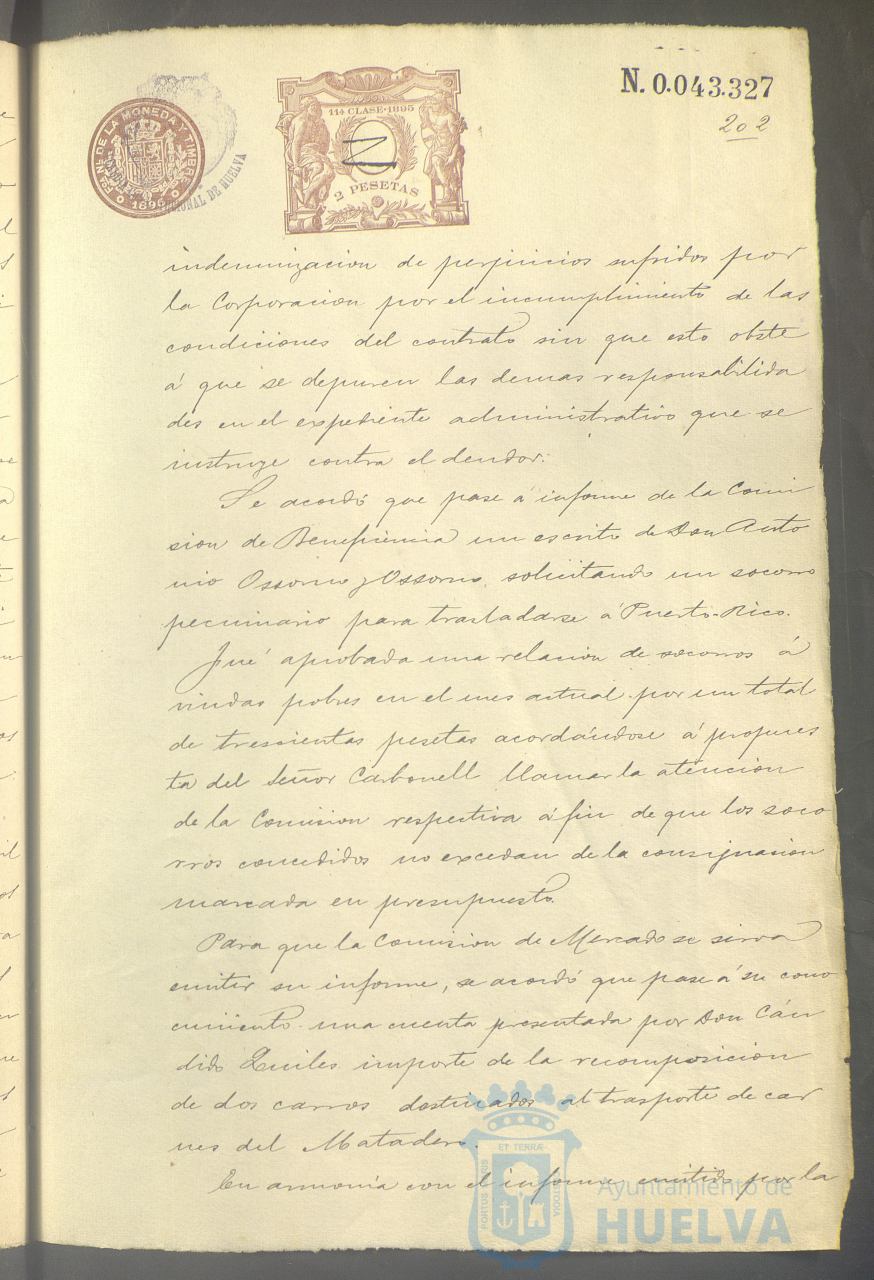 N. 0.043.327
202
11ª CLASE·1895
2 PESETAS
Fca. Nal. DE LA MONEDA Y TIMBRE
1895
DE HUELVA
indemnizacion de perjuicios sufridos por
la Corporacion por el incumplimiento de las
condiciones del contrato sin que esto obste
á que se depuren las demas responsabilida
des en el expediente administrativo que se
instruye contra el deudor.
Se acordó que pase á informe de la Comi
sion de Beneficencia un escrito de Don Anto
nio Ossorno y Ossorno, solicitando un socorro
pecuniario para trasladarse á Puerto-Rico.
Fué aprobada una relacion de socorros á
viudas pobres en el mes actual por un total
de trescientas pesetas acordándose á propues
ta del Señor Carbonell llamar la atencion
de la Comision respectiva á fin de que los soco
rros concedidos no excedan de la consignasion
marcada en presupuesto.
Para que la Comision de Mercado se sirva
emitir su informe, se acordó que pase á su cono
cimiento una cuenta presentada por Don Cán
dido Quiles importe de la recomposicion
de dos carros destinados al trasporte de car
nes del Matadero.
En armonía con el informe emitido por la
ET TERRÆ
PORTUS MARIS
CUSTODIA
Ayuntamiento de
HUELVA